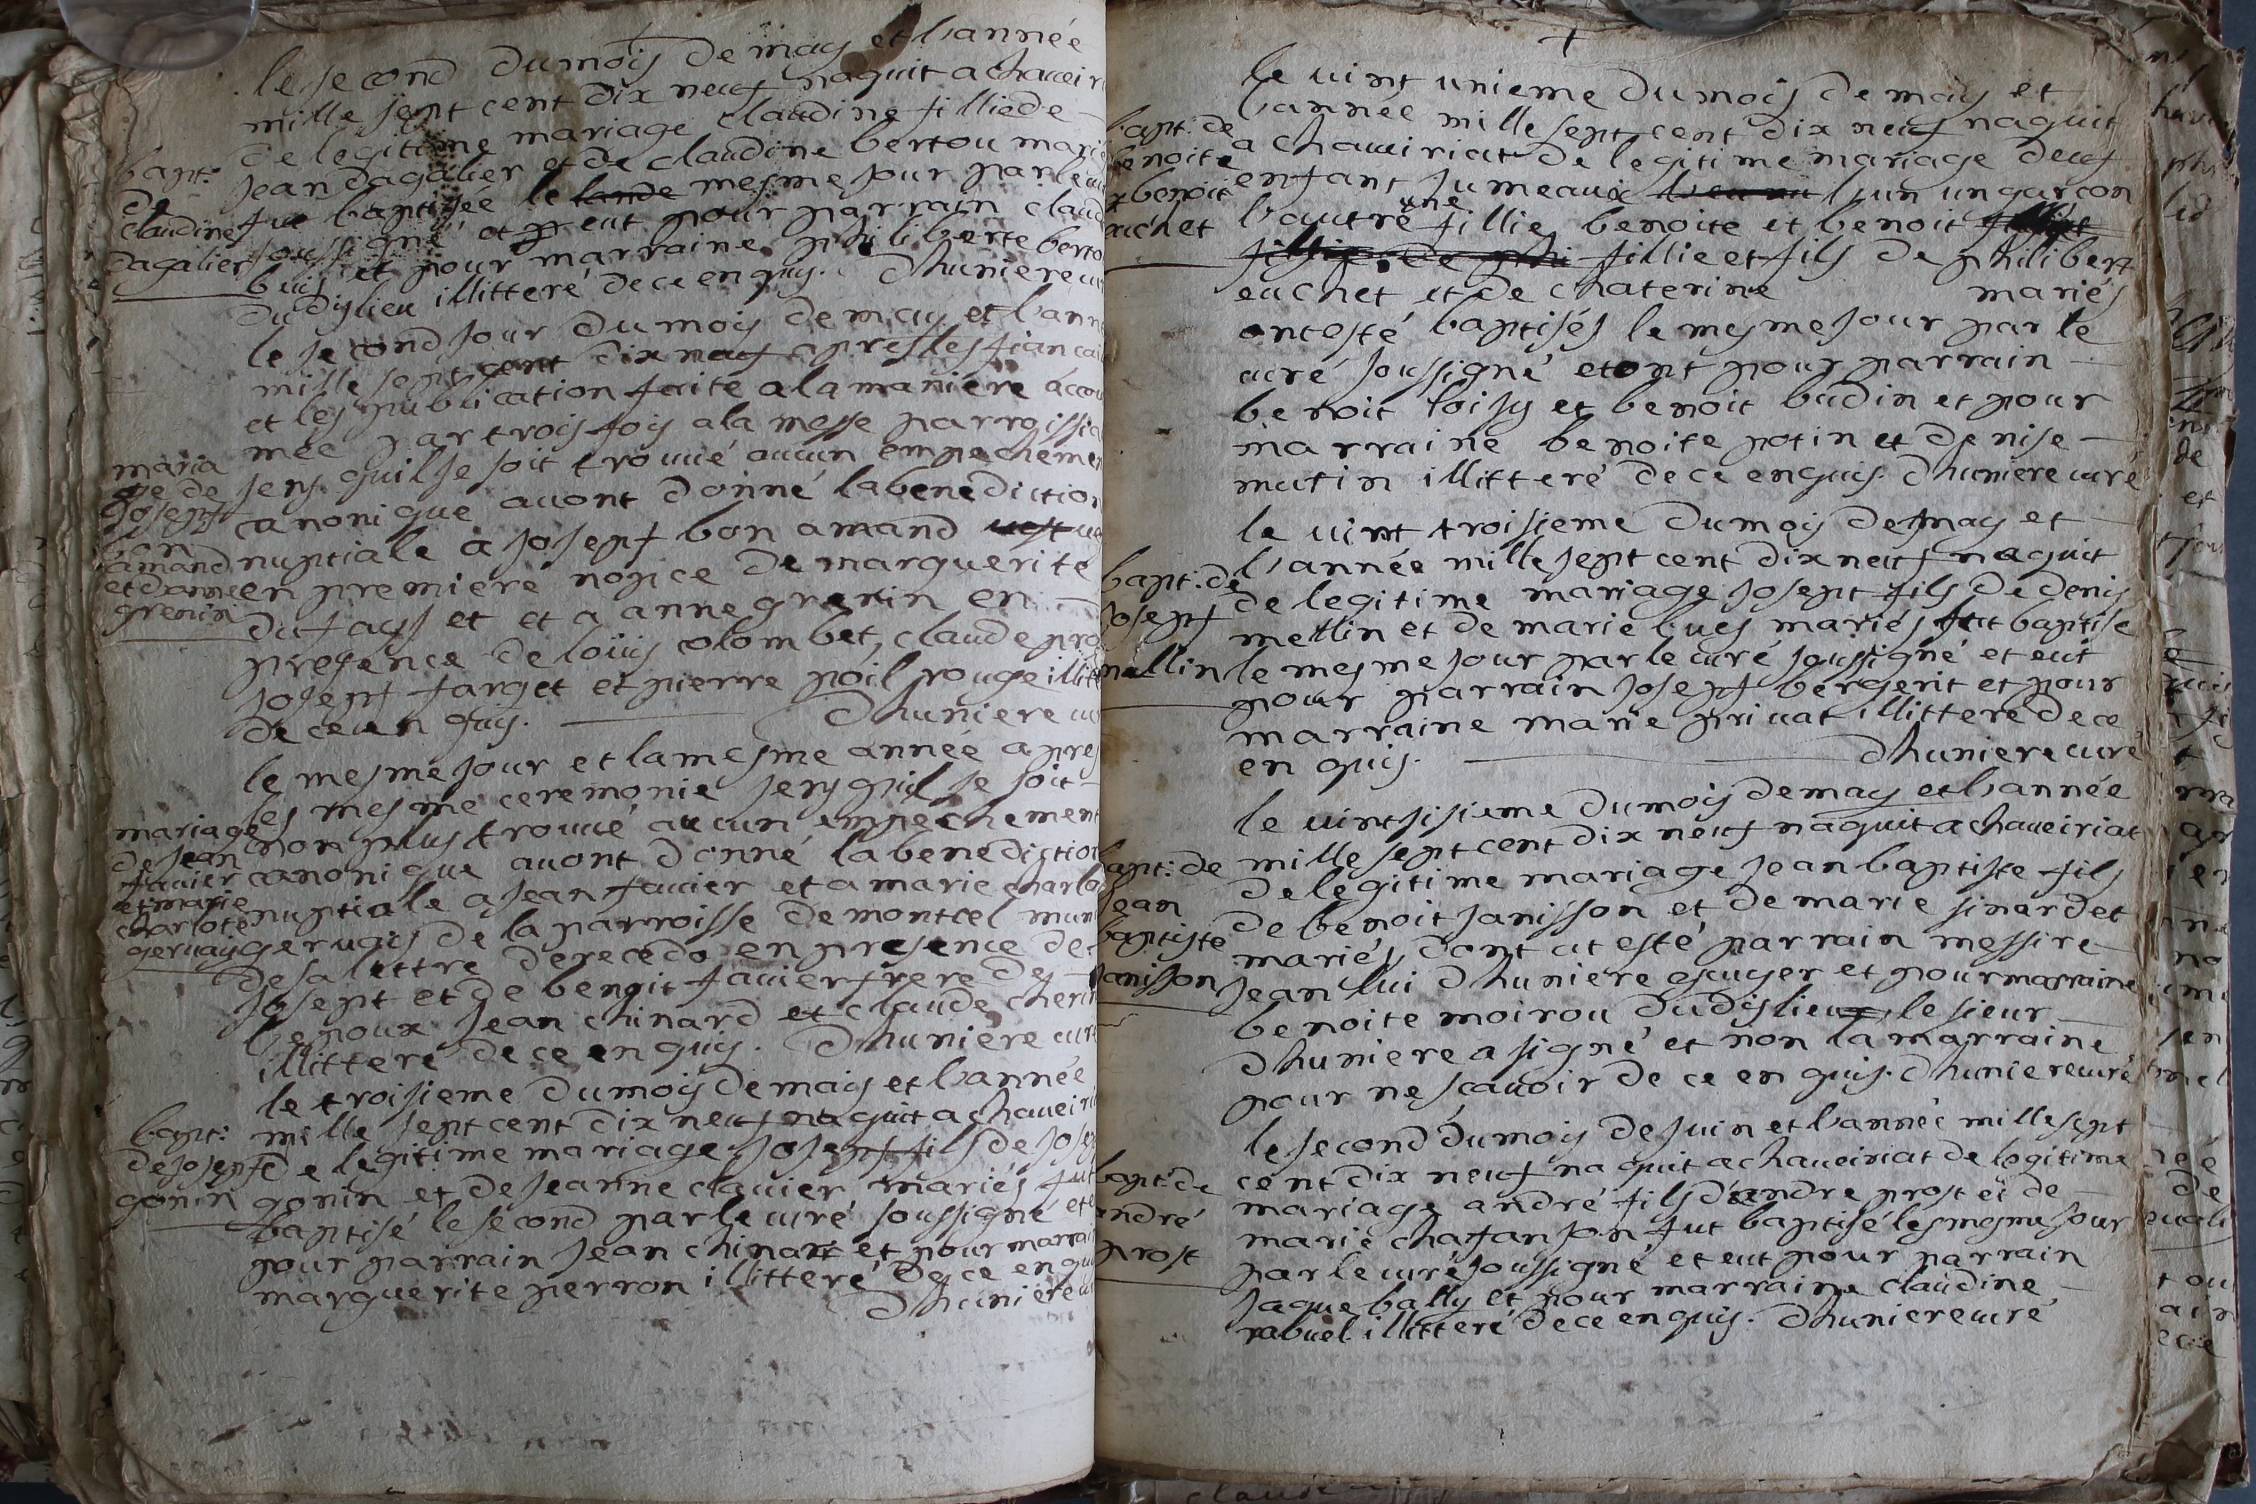 le second du mois de may et l'année
mille sept cent dix neuf naquit a chaveiri
de legitime mariage claudine fillie de
jean dagalier et de claudine bertou marié
bapt:
de
claudine
dagalier
fut baptisée le lande mesme jour par le cu
soussigné et eut pour parrain claud
buis et pour marraine philiberte berto
du dis lieu illitteré de ce enquis. Dhuniere cu
le second jour du mois de may et l'ann
mille sept cent dix neuf apres les fiancai
et les publication faite a la maniere accou
mée par trois fois a la messe parroissia
sens quil se soit trouvé aucun empechemen
maria
ge de
Josepf
bon
amand
et d'anne
grenin
canonique avont donné la benediction
nuptiale a josepf bon amand veuf
en premiere nopce de marguerite
dufays et et a anne grenin en
presence de loüis colombet, claude pro
josepf farget et pierre poil rouge illitt
de ce en quis. Dhuniere cu
le mesme jour et la mesme année apres
les mesme ceremonie sens quil se soit
non plus trouvé aucun empechement
mariage
de jean
favier
et marie
charlote
gervays
canonique avont donné la benediction
nuptiale a jean favier et a marie charlo
gervais de la parroisse de montcel muni
de sa lettre de recedo en presence de
josept et de benoit favier frere de
lepoux jean chinard et claude cherin
illitteré de ce en quis. Dhuniere curé
le troisieme du mois de may et l'année
mille sept cent dix neuf naquit a chaveiri
bapt:
de josepf
gonin
de legitime mariage josepf fils de josep
gonin et de jeanne clavier mariés fut
baptisé le second par le curé soussigné et e
pour parrain jean chinart et pour marrai
marguerite perron illitteré de ce en qui
Dhuniere cu
+
le vint unieme du mois de may et
l'année mille sept cent dix neuf naquit
bapt: de
benoite
benoit
euchet
a chaveiriat de legitime mariage deuf
enfant jumeaux l'un un garcon
l'autre une fillie benoite et benoit
fillie de phi fillie et fils de philibert
euchet et de chaterine mariés
ont esté baptisés le mesme jour par le
curé soussigné et ont pour parrain
benoit loisy et benoit budin et pour
marraine benoite potin et denise
mutin illitteré de ce enquis. Dhuniere curé
le vint troisieme du mois de may et
l'année mille sept cent dix neuf naquit
bapt: de
josepf
mellin
de legitime mariage josept fils de denis
mellin et de marie bues mariés fut baptise
le mesme jour par le curé soussigné et eut
pour parrain josepf bergerit et pour
marraine marie privat illitteré de ce
en quis. Dhuniere curé
le vintsisieme du mois de may et l'année
mille sept cent dix neuf naquit a chaveiriat
bapt: de
jean
baptiste
janisson
de legitime mariage jean baptiste fils
de benoit janisson et de marie sinardet
mariés dont at esté parrain messire
jean lui Dhuniere escuyer et pour marraine
benoite moirou du dis lieu le sieur
Dhuniere a signé et non la marraine
pour ne scavoir de ce en quis. Dhuniere curé
le second du mois de juin et l'année mille sept
cent dix neuf naquit a chaveiriat de legitime
bapt: de
andré
prost
mariage andré fils d'andre prost et de
marie chafanjon fut baptisé les mesme jour
par le curé soussigné et eut pour parrain
jaque bally et pour marraine claudine
rabuel illitteré de ce en quis. Dhuniere curé